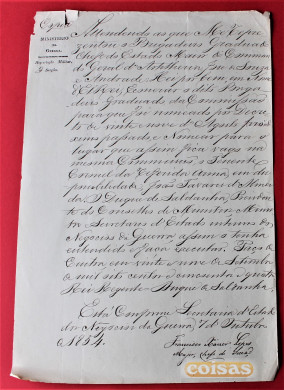 Copia
MINISTERIO
DA
GUERRA
Repartição Militar
Attendendo ao que Me expoz
o Brigadeiro Graduado
Chefe do Estado Maior do Comman
do Geral de Artilheria, José
Andrade
d'Elvas, exonerar o dito Briga
deiro Graduado da Commissão
para que foi nomeado por Decre
to de vinte nove d'Agosto proxi
mo passado, e Nomear para o
lugar que assim fica vago na
mesma Commissão o
Coronel da referida Arma, em dis
ponibilidade José Tavares d'
da. O Duque de Saldanha, Presiden
te do Conselho de Ministros, Minis
tro e Secretario d'Estado interino dos
Negocios da Guerra assim o tenha
entendido e faça executar. Paço de
Cintra em vinte nove de Setembro
de mil oito centos cincoenta e quatro
Rei Regente = Duque de Saldanha.
Está Conforme. Secretaria d'Estado
dos Negocios da Guerra, 7 d'Outubro
1854.
Francisco Xavier Lopes
Major, Chefe da
coisas